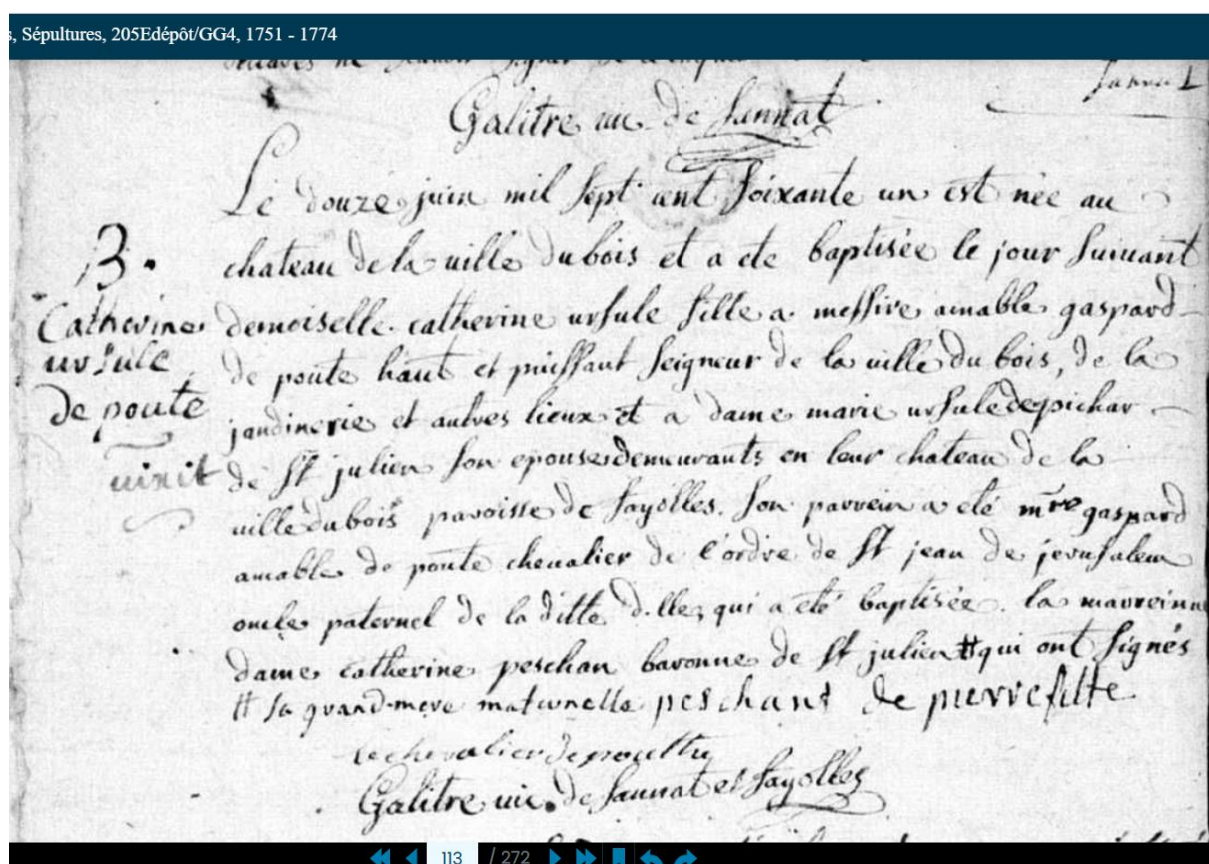 , Sépultures, 205Edépôt/GG4, 1751 - 1774
Sannat
Galitre vic. de Sannat
Le douze juin mil sept cent soixante un est née au
chateau de la ville du bois et a ete baptisée le jour suivant
B.
Catherine
ursule
de poute
vixit
demoiselle catherine ursule fille a messire amable gaspard
de poute haut et puissant seigneur de la ville du bois, de la
jandinerie et autres lieux et a dame marie ursule de pichar
de St julien son epouse demeurants en leur chateau de la
ville du bois paroisse de fayolles. son parrein a eté mre gaspard
amable de poute chevalier de l'ordre de St jean de jerusalem
oncle paternel de la ditte d.lle, qui a eté baptisée. la marreinne
dame catherine peschan baronne de St julien # qui ont signés
# sa grand-mere maternelle peschant de pierrefitte
le chevalier de
Galitre vic. de Sannat et fayolles
113 / 272